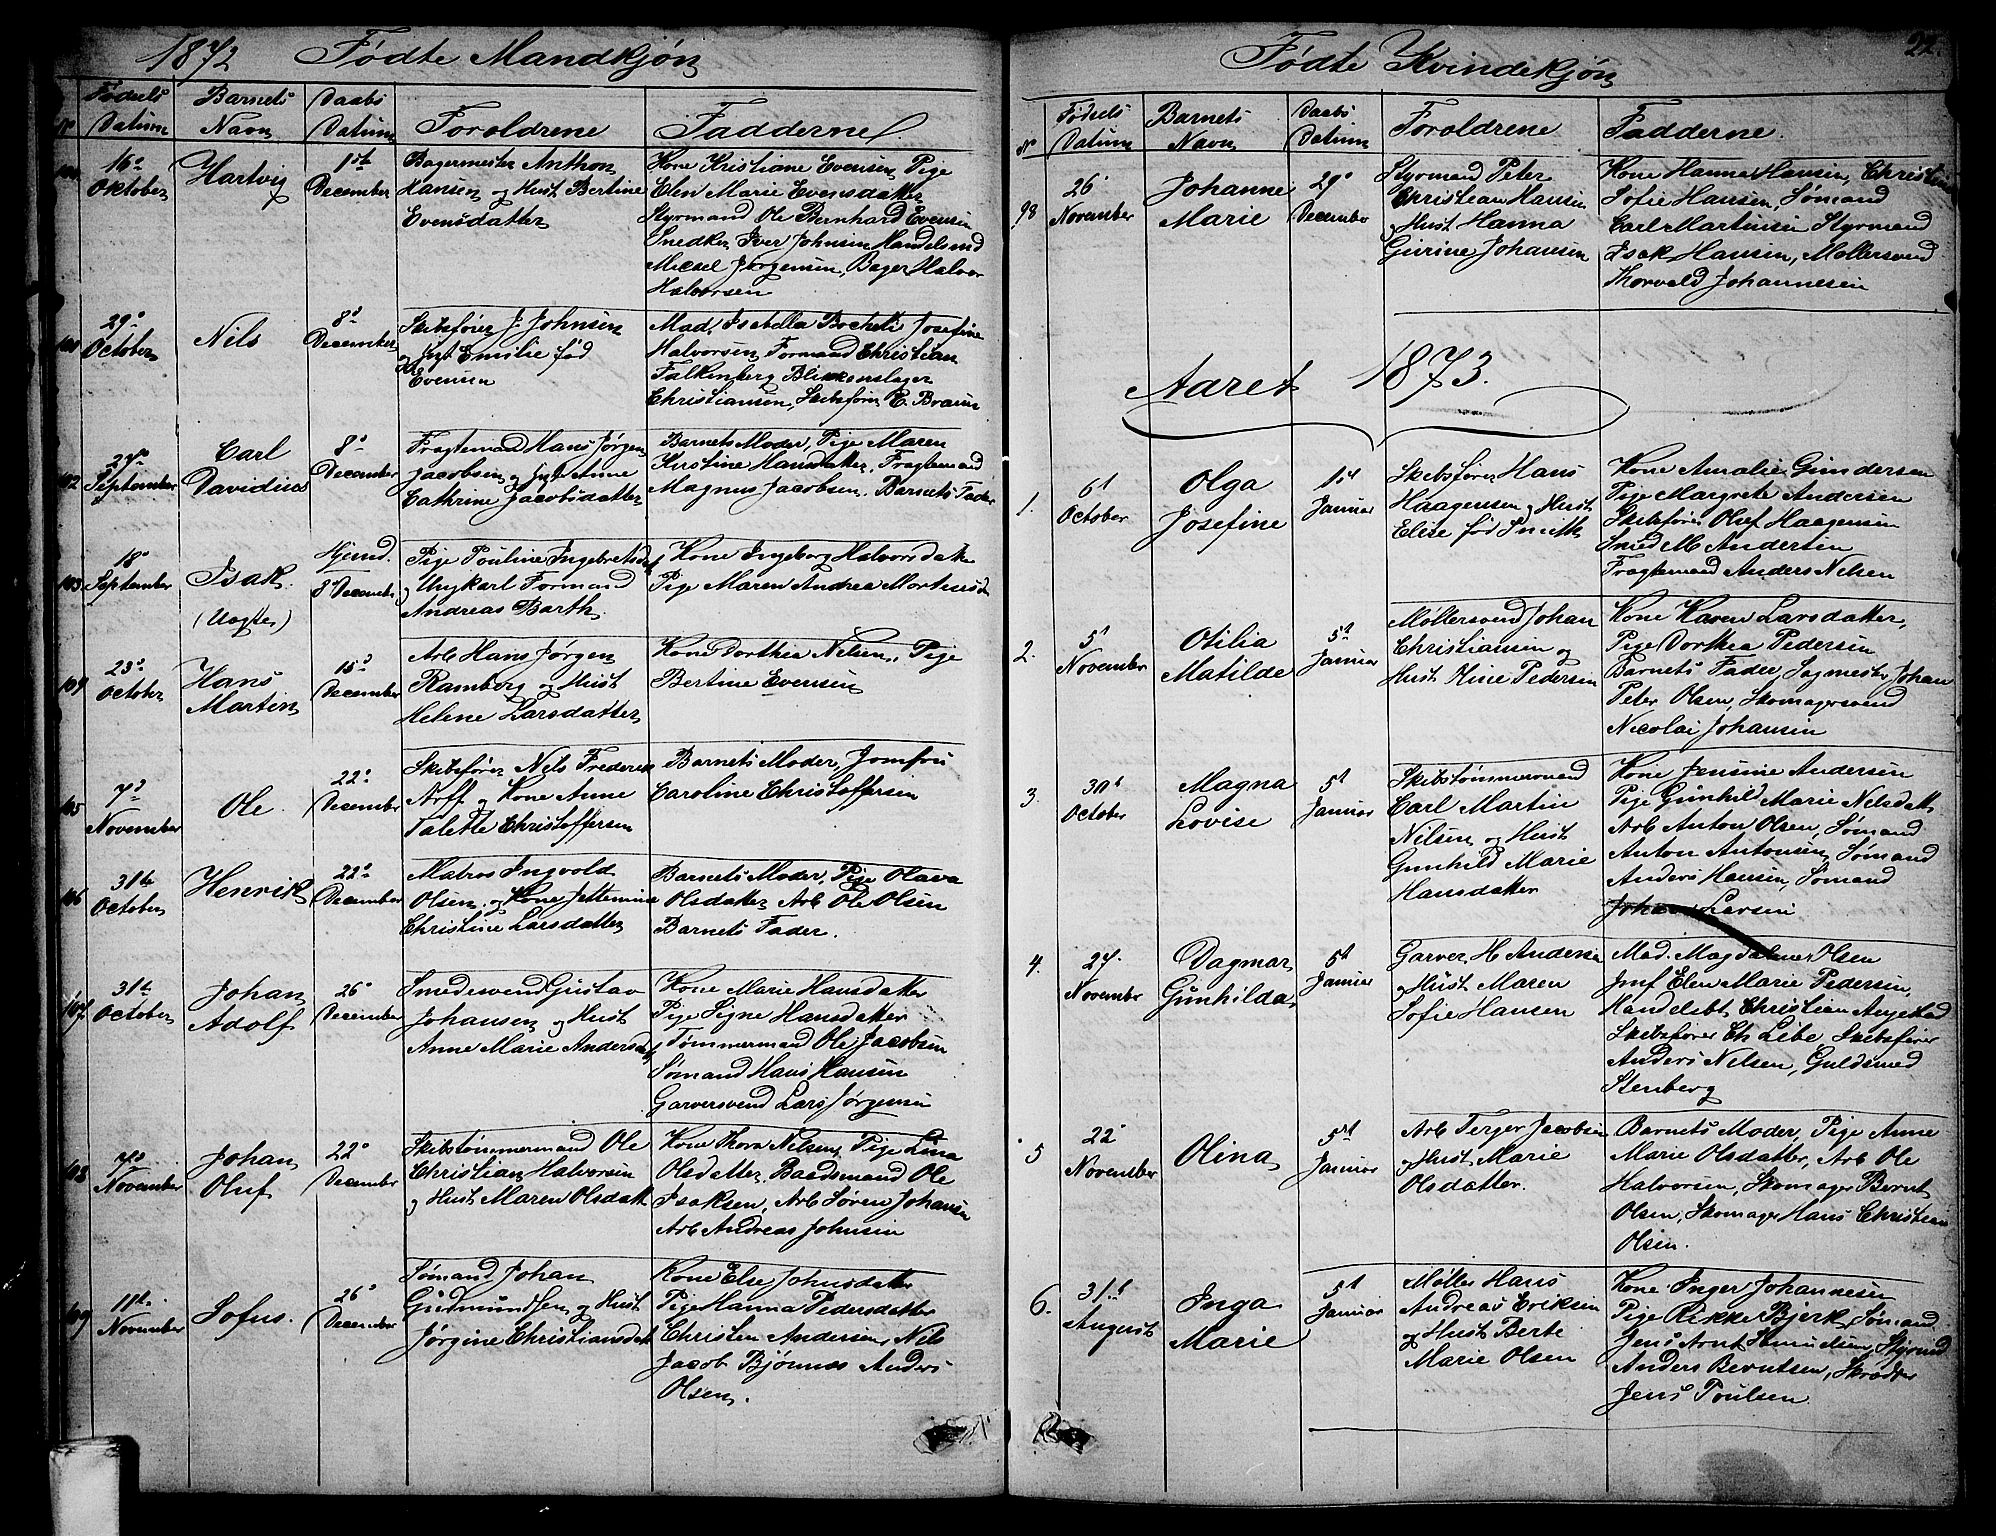 1872 Fødte Mandkjøn
No
Fødsels Datum
Barnets Navn
Daabs Datum
Foroldrene
Fadderne
100
16de Oktober
Hartvig
1ste December
Bagermester Anthon
Hansen og Hust Bertine
Evensdatter
Kone Kristiane Evensen, Pige
Elen Marie Evensdatter
Styrmand Ole Bernhard Evensen
Snedker Iver Johnsen Handelsmd
Micael Jørgensen, Bager Halvor
Halvorsen
101
29de October
Nils
8d December
Skibsfører J. Johnsen
og Emilie fød
Evensen
Mad. Isabella Josefine
Halvorsen, Formand Christian
Falkenberg Blikkenslager
Christiansen, Skibsfører E. Braun
102
September
Carl Davidius
8d December
Fragtemand Hans Jørgen
Jacobsen og Anne
Cathrine Jacobsdatter
Barnets Moder, Pige Maren
Kirstine Hansdatter, Fragtemand
Magnus Jacobsen, Barnets Fader
103
18de September
Isak.
(Uægte)
Hjemd.
8 December
Pige Pouline Ingebretsd
og Ungkarl Formand
Andreas Barth.
Kone Ingeborg Halvorsdatter
Pige Maren Andrea
104
23de October
Hans Martin
15d December
Arb Hans Jørgen
Ramberg og Hust
Helene Larsdatter
Kone Dorthea Nelsen, Pige
Bertine Evensen
105
7d November
Ole.
22de December
Skibsfører Nels Frederik
Arff og Kone Anne
Talette Christoffersen
Barnets Moder, Jomfru
Caroline Christoffersen
106
31te October
Henrik
22de December
Matros Ingvold
Olsen og Kone Jettemine
Christine Larsdatter
Barnets Moder, Pige Olava
Olsdatter Arb Ole Olsen
Barnets Fader.
107
31te October
Johan Adolf
26de December
Smedesvend Gustav
Johansen og Hust
Anne Marie Andersd
Kone Marie Hansdatter
Pige Signe Hansdatter
Tømmermand Ole Jacobsen
Sømand Hans Hansen
Garversvend Lars Jørgensen
108
7de November
Johan Oluf
22de December
Skibstømmermand Ole
Christian Halvorsen
og Hust Maren Olsdatt
Kone Thora Nelsen, Pige Lina
Olsdatter, Baadsmand Ole
Isaksen, Arb Søren Johansen
Arb Andreas Johnsen
109
11te November
Sofus.
26de December
Sømand Johan
Gudmundsen og Hust
Jørgine Christiansdat
Kone Else Johnsdatter
Pige Hanna Pedersdatter
Christen Andersen, Nils
Jacob Bjønnes Anders
Olsen.
Fødte Kvindekjøn
22.
No
Fødsels Datum
Barnets Navn
Daabs Datum
Foroldrene
Fadderne.
98
26 November
Johanne Marie
29de December
Styrmand Peter
Christian Hansen
og Hust Hanna
Gurine Johansen
Kone Hanna Hansen, Christine
Sofie Hansen, Sømand
Carl Martinsen Styrmand
Isak Hansen, Møllersvend
Thorvald Johannesen
Aaret 1873.
1.
6t October
Olga Josefine
1st Januar
Skibsfører Hans
Haagensen og Hust
Elise fød Smith
Kone Amalie Gundersen
Pige Margrete Andersen
Skibsfører Oluf Haagensen
Smed M Andersen
Fragtemand Anders Nelsen
2.
5t November
Otilia Matilde
5t Januar
Møllersvend Johan
Christiansen og
Hust Nine Pedersen
Kone Karen Larsdatter,
Pige Dorthea Pedersen
Barnets Fader, Sagmester Johan
Peter Olsen, Skomagersvend
Nicolai Johansen
3.
30t October
Magna Lovise
5t Januar
Skibstømmermand
Carl Martin
Nilsen og Hust
Gunhild Marie
Hansdatter
Kone Jensine Andersen
Pige Gunhild Marie Nelsdatt
Arb Anton Olsen, Sømand
Anton Antonsen, Sømand
Anders Hansen, Sømand
Johan Larsen
4.
27. November
Dagmar Gunhilda
5t Januar
Garver H Andersen
og Hust Maren
Sofie Hansen
Mad. Magdalene Olsen
Jmf Elen Marie Pedersen,
Handelsbt Christian Angelstad
Skibsfører Ch Libe, Skibsfører
Anders Nelsen, Guldsmed
Stenberg
5
22 November
Olina
5t Januar
Arb Terger Jacobsen
og Hust Marie
Olsdatter.
Barnets Moder, Pige Anne
Marie Olsdatter, Arb Ole
Halvorsen, Skomager Bernt
Olsen, Skomager Hans Christian
Olsen.
6.
31te August
Inga Marie
5t Januar
Møller Hans
Andreas Eriksen
og Hust Berte
Marie Olsen
Kone Inger Johannesen
Pige Rikke Bjerk, Sømand
Jens Arnt Styrmd
Anders Berntsen, Skrædder
Jens Poulsen